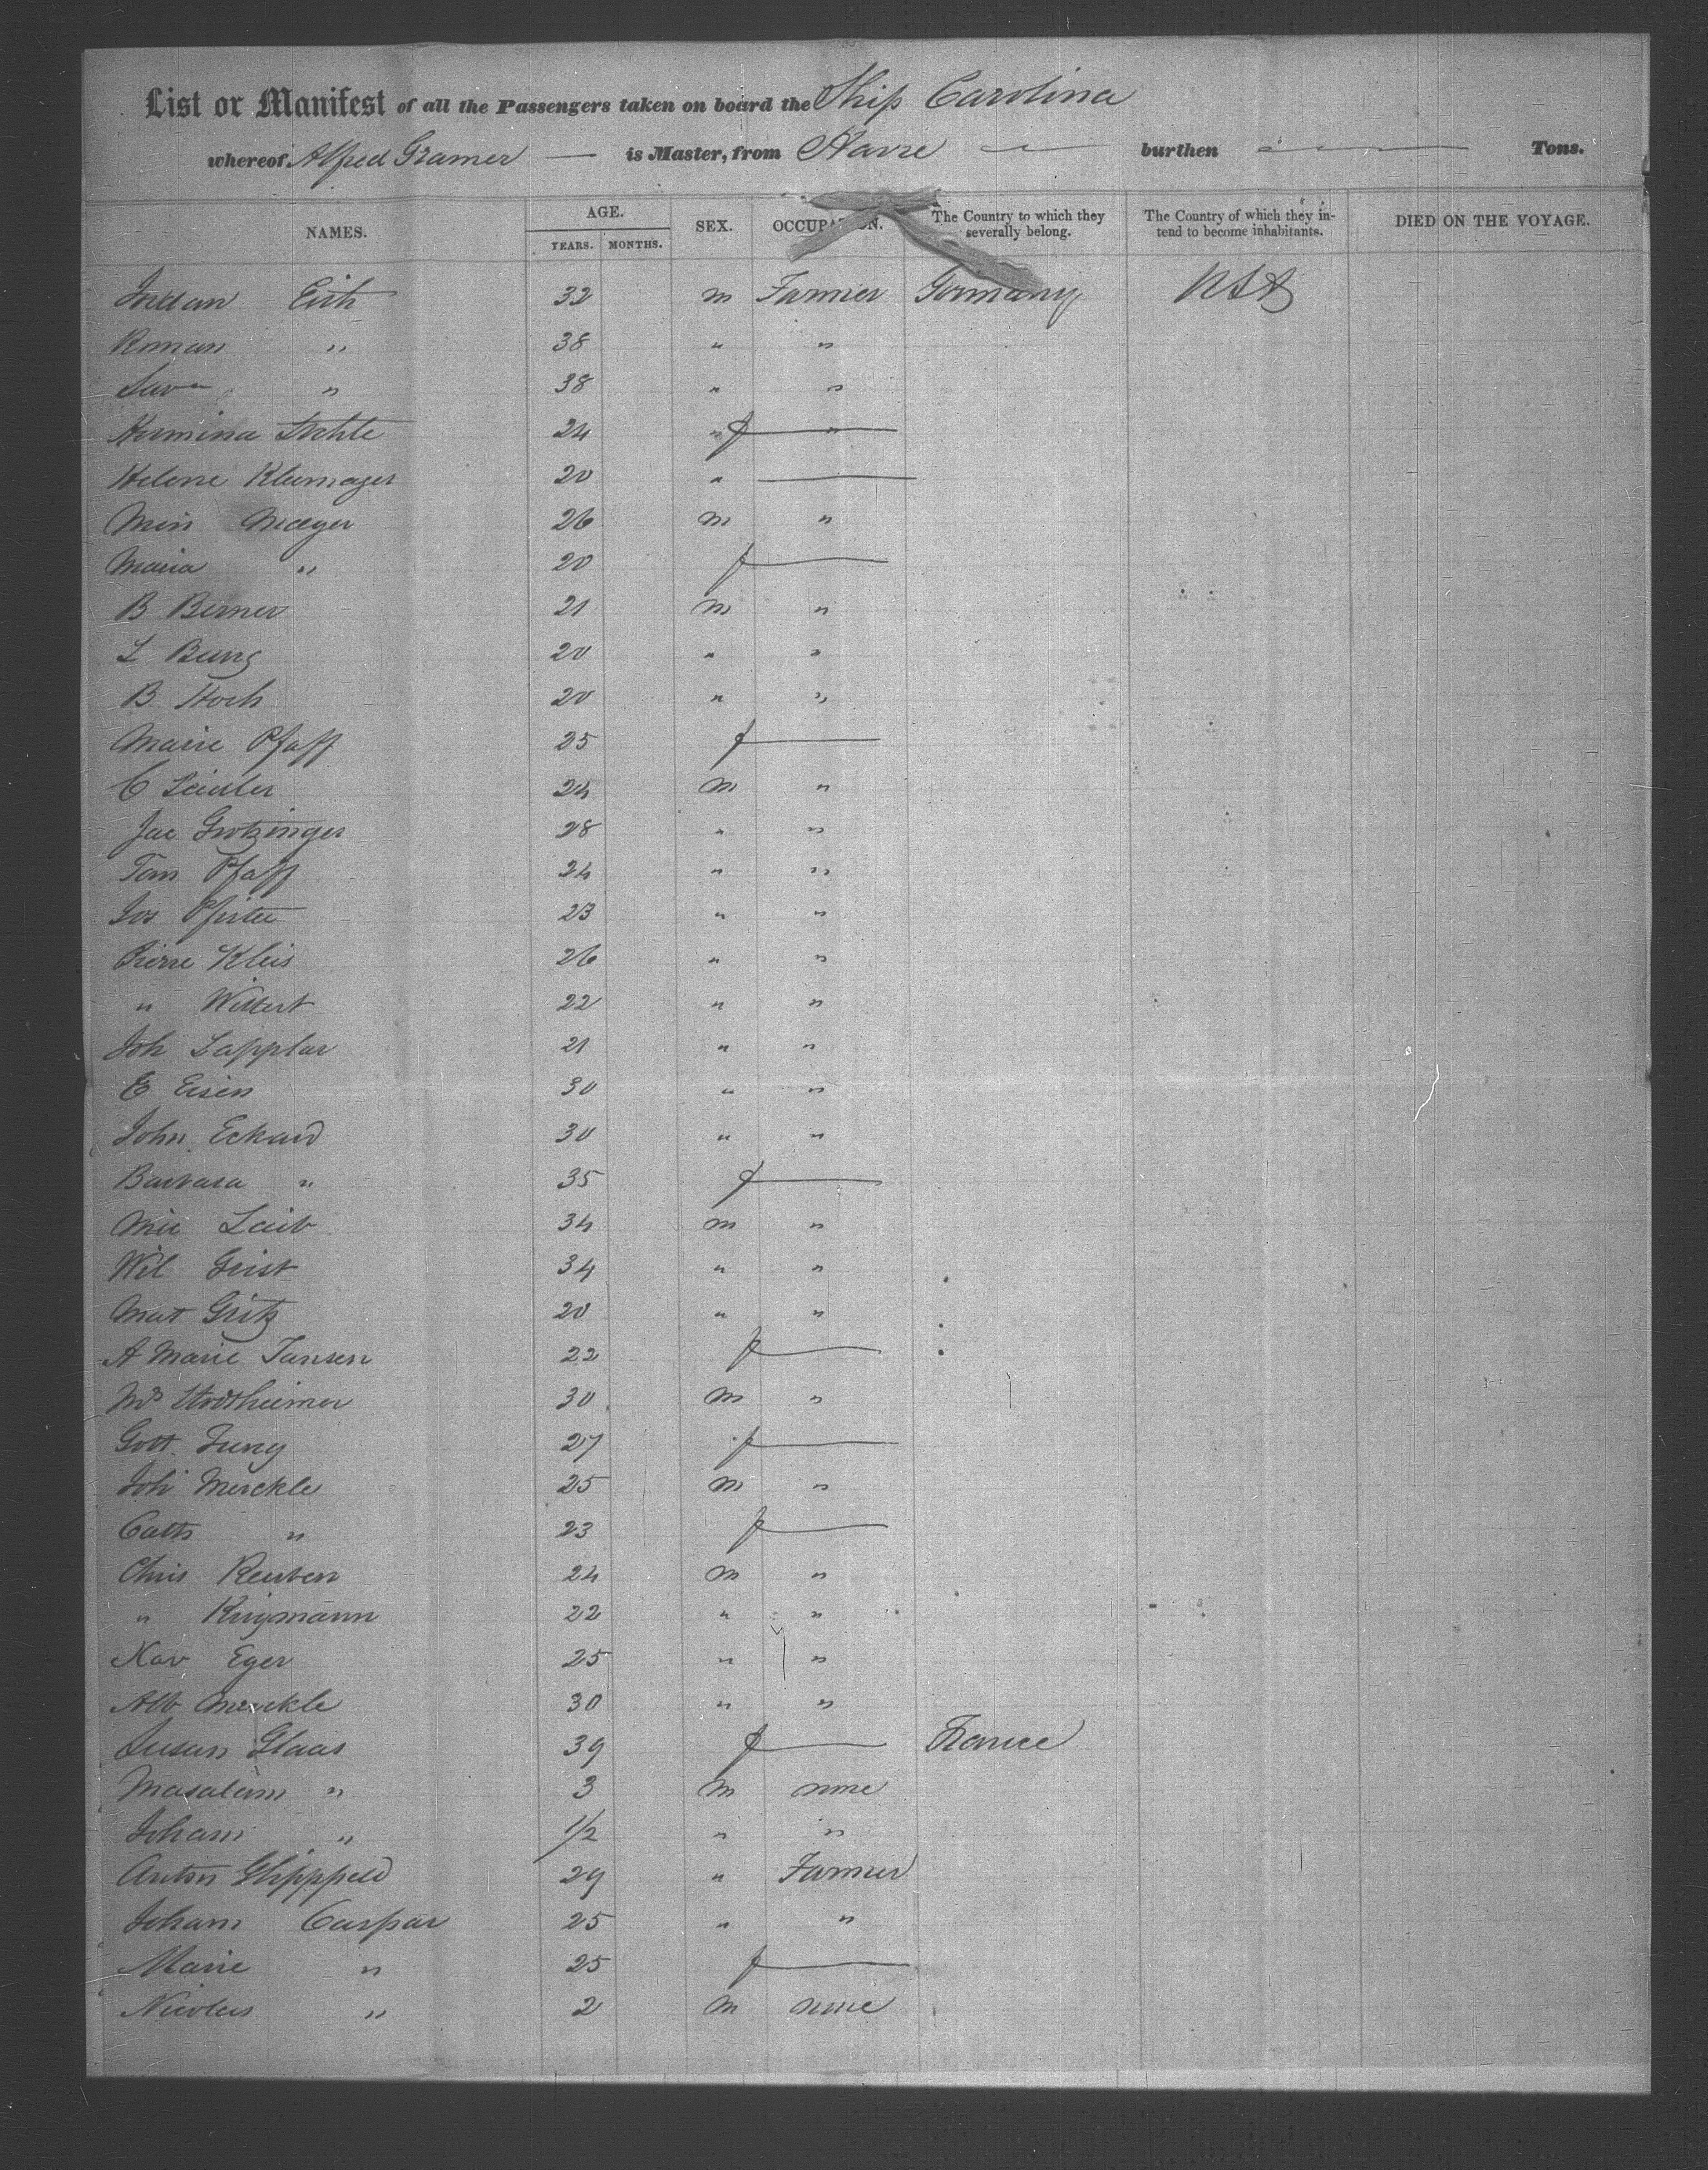 List or Manifest of all the Passengers taken on board the Ship Carolina
whereof Alfred Gramer — is Master, from Havre — burthen — Tons.
NAMES. AGE. YEARS. MONTHS. SEX. OCCUPATION. The Country to which they severally belong. The Country of which they intend to become inhabitants. DIED ON THE VOYAGE.
32 m Farmer Germany USA
Roman " 38 " "
" 38 " "
Hermina 24 f — "
Helene Klumager 20 " —
Meyer 26 m "
Maria " 20 f —
B Berner 21 m "
L Bung 20 " "
B Hoch 20 " "
Marie Pfaff 25 f —
C Leidler 24 m "
Jac Grotzinger 28 " "
Tom Pfaff 24 " "
Jos Pfister 23 " "
Pierre Kleis 26 " "
" Willert 22 " "
Joh Lapplar 21 " "
E Eisen 30 " "
John Eckard 30 " "
Barbara " 35 f —
Mic Laib 34 m "
Wil Geist 34 " "
Mat Gritz 20 " "
A Marie Jansen 22 f —
30 m "
Gott Jung 27 f —
Joh Merckle 25 m "
Cath " 23 f —
Chris Reuben 24 m "
" Krigmann 22 " "
Xav Eger 25 " "
Alb Merckle 30 " "
Susan Glaas 39 f — France
" 3 m none
Joham " 1/2 " "
Anton 29 " Farmer
Joham Caspar 25 " "
Marie " 25 f —
Nicolas " 2 m none